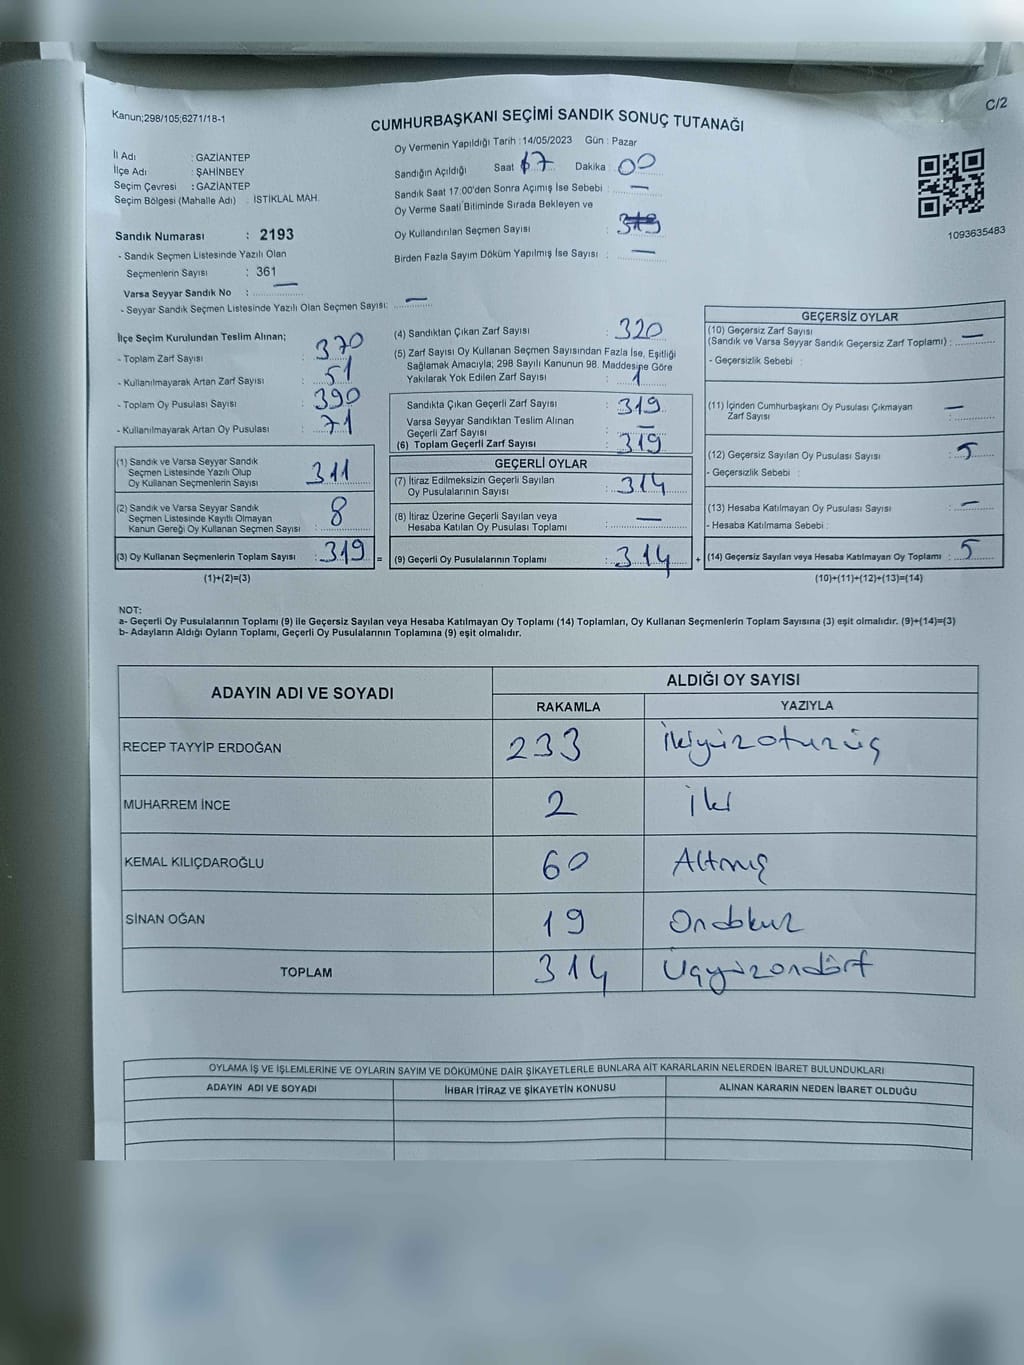 C/2
Kanun;298/105;6271/18-1
CUMHURBAŞKANI SEÇİMİ SANDIK SONUÇ TUTANAĞI
Oy Vermenin Yapıldığı Tarih : 14/05/2023 Gün : Pazar
İl Adı : GAZİANTEP
İlçe Adı : ŞAHİNBEY
Seçim Çevresi : GAZİANTEP
Seçim Bölgesi (Mahalle Adı) : İSTİKLAL MAH.
Sandığın Açıldığı Saat 17 Dakika : 00
Sandık Saat 17:00'den Sonra Açımış İse Sebebi : —
Oy Verme Saati Bitiminde Sırada Bekleyen ve
Oy Kullandırılan Seçmen Sayısı : 319
Birden Fazla Sayım Döküm Yapılmış İse Sayısı : —
1093635483
Sandık Numarası : 2193
- Sandık Seçmen Listesinde Yazılı Olan
Seçmenlerin Sayısı : 361
Varsa Seyyar Sandık No : —
- Seyyar Sandık Seçmen Listesinde Yazılı Olan Seçmen Sayısı: —
İlçe Seçim Kurulundan Teslim Alınan;
- Toplam Zarf Sayısı : 370
- Kullanılmayarak Artan Zarf Sayısı : 51
- Toplam Oy Pusulası Sayısı : 390
- Kullanılmayarak Artan Oy Pusulası : 71
(1) Sandık ve Varsa Seyyar Sandık
Seçmen Listesinde Yazılı Olup
Oy Kullanan Seçmenlerin Sayısı : 311
(2) Sandık ve Varsa Seyyar Sandık
Seçmen Listesinde Kayıtlı Olmayan
Kanun Gereği Oy Kullanan Seçmen Sayısı : 8
(3) Oy Kullanan Seçmenlerin Toplam Sayısı : 319 =
(1)+(2)=(3)
(4) Sandıktan Çıkan Zarf Sayısı : 320
(5) Zarf Sayısı Oy Kullanan Seçmen Sayısından Fazla İse, Eşitliği
Sağlamak Amacıyla; 298 Sayılı Kanunun 98. Maddesine Göre
Yakılarak Yok Edilen Zarf Sayısı : 1
Sandıkta Çıkan Geçerli Zarf Sayısı : 319
Varsa Seyyar Sandıktan Teslim Alınan
Geçerli Zarf Sayısı : —
(6) Toplam Geçerli Zarf Sayısı : 319
GEÇERLİ OYLAR
(7) İtiraz Edilmeksizin Geçerli Sayılan
Oy Pusulalarının Sayısı : 314
(8) İtiraz Üzerine Geçerli Sayılan veya
Hesaba Katılan Oy Pusulası Toplamı : —
(9) Geçerli Oy Pusulalarının Toplamı : 314 +
GEÇERSİZ OYLAR
(10) Geçersiz Zarf Sayısı
(Sandık ve Varsa Seyyar Sandık Geçersiz Zarf Toplamı) : —
- Geçersizlik Sebebi :
(11) İçinden Cumhurbaşkanı Oy Pusulası Çıkmayan
Zarf Sayısı : —
(12) Geçersiz Sayılan Oy Pusulası Sayısı : 5
- Geçersizlik Sebebi :
(13) Hesaba Katılmayan Oy Pusulası Sayısı : —
- Hesaba Katılmama Sebebi :
(14) Geçersiz Sayılan veya Hesaba Katılmayan Oy Toplamı : 5
(10)+(11)+(12)+(13)=(14)
NOT:
a- Geçerli Oy Pusulalarının Toplamı (9) ile Geçersiz Sayılan veya Hesaba Katılmayan Oy Toplamı (14) Toplamları, Oy Kullanan Seçmenlerin Toplam Sayısına (3) eşit olmalıdır. (9)+(14)=(3)
b- Adayların Aldığı Oyların Toplamı, Geçerli Oy Pusulalarının Toplamına (9) eşit olmalıdır.
ADAYIN ADI VE SOYADI ALDIĞI OY SAYISI
RAKAMLA YAZIYLA
RECEP TAYYİP ERDOĞAN 233 İkiyüzotuzüç
MUHARREM İNCE 2 İki
KEMAL KILIÇDAROĞLU 60 Altmış
SİNAN OĞAN 19 Ondokuz
TOPLAM 314 Üçyüzondört
OYLAMA İŞ VE İŞLEMLERİNE VE OYLARIN SAYIM VE DÖKÜMÜNE DAİR ŞİKAYETLERLE BUNLARA AİT KARARLARIN NELERDEN İBARET BULUNDUKLARI
ADAYIN ADI VE SOYADI İHBAR İTİRAZ VE ŞİKAYETİN KONUSU ALINAN KARARIN NEDEN İBARET OLDUĞU